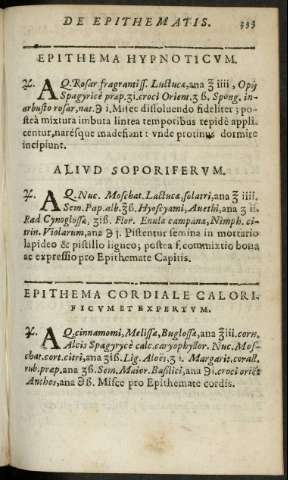 DE EPITHEMATIS. 333
EPITHEMA HYPNOTICVM.
♃. AQ. Rosar. fragrantiss. Lactucæ, ana ℥ iiii, Opij
Spagyricè præp. ʒi. croci Orient. ʒ ß. Spong. in-
arbusto rosar. nat. ℈ i. Misce dissoluendo fideliter ; po-
steà mixtura imbuta lintea temporibus tepidè appli-
centur, narésque madefiant : vnde protinus dormire
incipiunt.
ALIVD SOPORIFERVM.
♃. AQ. Nuc. Moschat. Lactucæ, solatri, ana ℥ iiii.
Sem. Pap. alb. ʒß. Hyoscyami, Anethi, ana ʒ ii.
Rad Cynoglossæ, ʒiß. Flor. Enulæ campanæ, Nimph. ci-
trin. Violarum, ana ℈ j. Pistentur semina in mortario
lapideo & pistillo ligneo ; postea f. commixtio bona
ac expressio pro Epithemate Capitis.
EPITHEMA CORDIALE CALORI-
FICVM ET EXPERTVM.
♃. AQ. cinnamomi, Melissæ, Buglossæ, ana ℥iii. corn.
Alcis Spagyricè calc. caryophyllor. Nuc. Mos-
chat. cort. citri, ana ʒiß. Lig. Aloës, ʒ i. Margarit. corall.
rub. præp. ana ʒß. Sem. Maior. Basilici, ana ℈i. croci oriẽt.
Anthos, ana ℈ß. Misce pro Epithemate cordis.